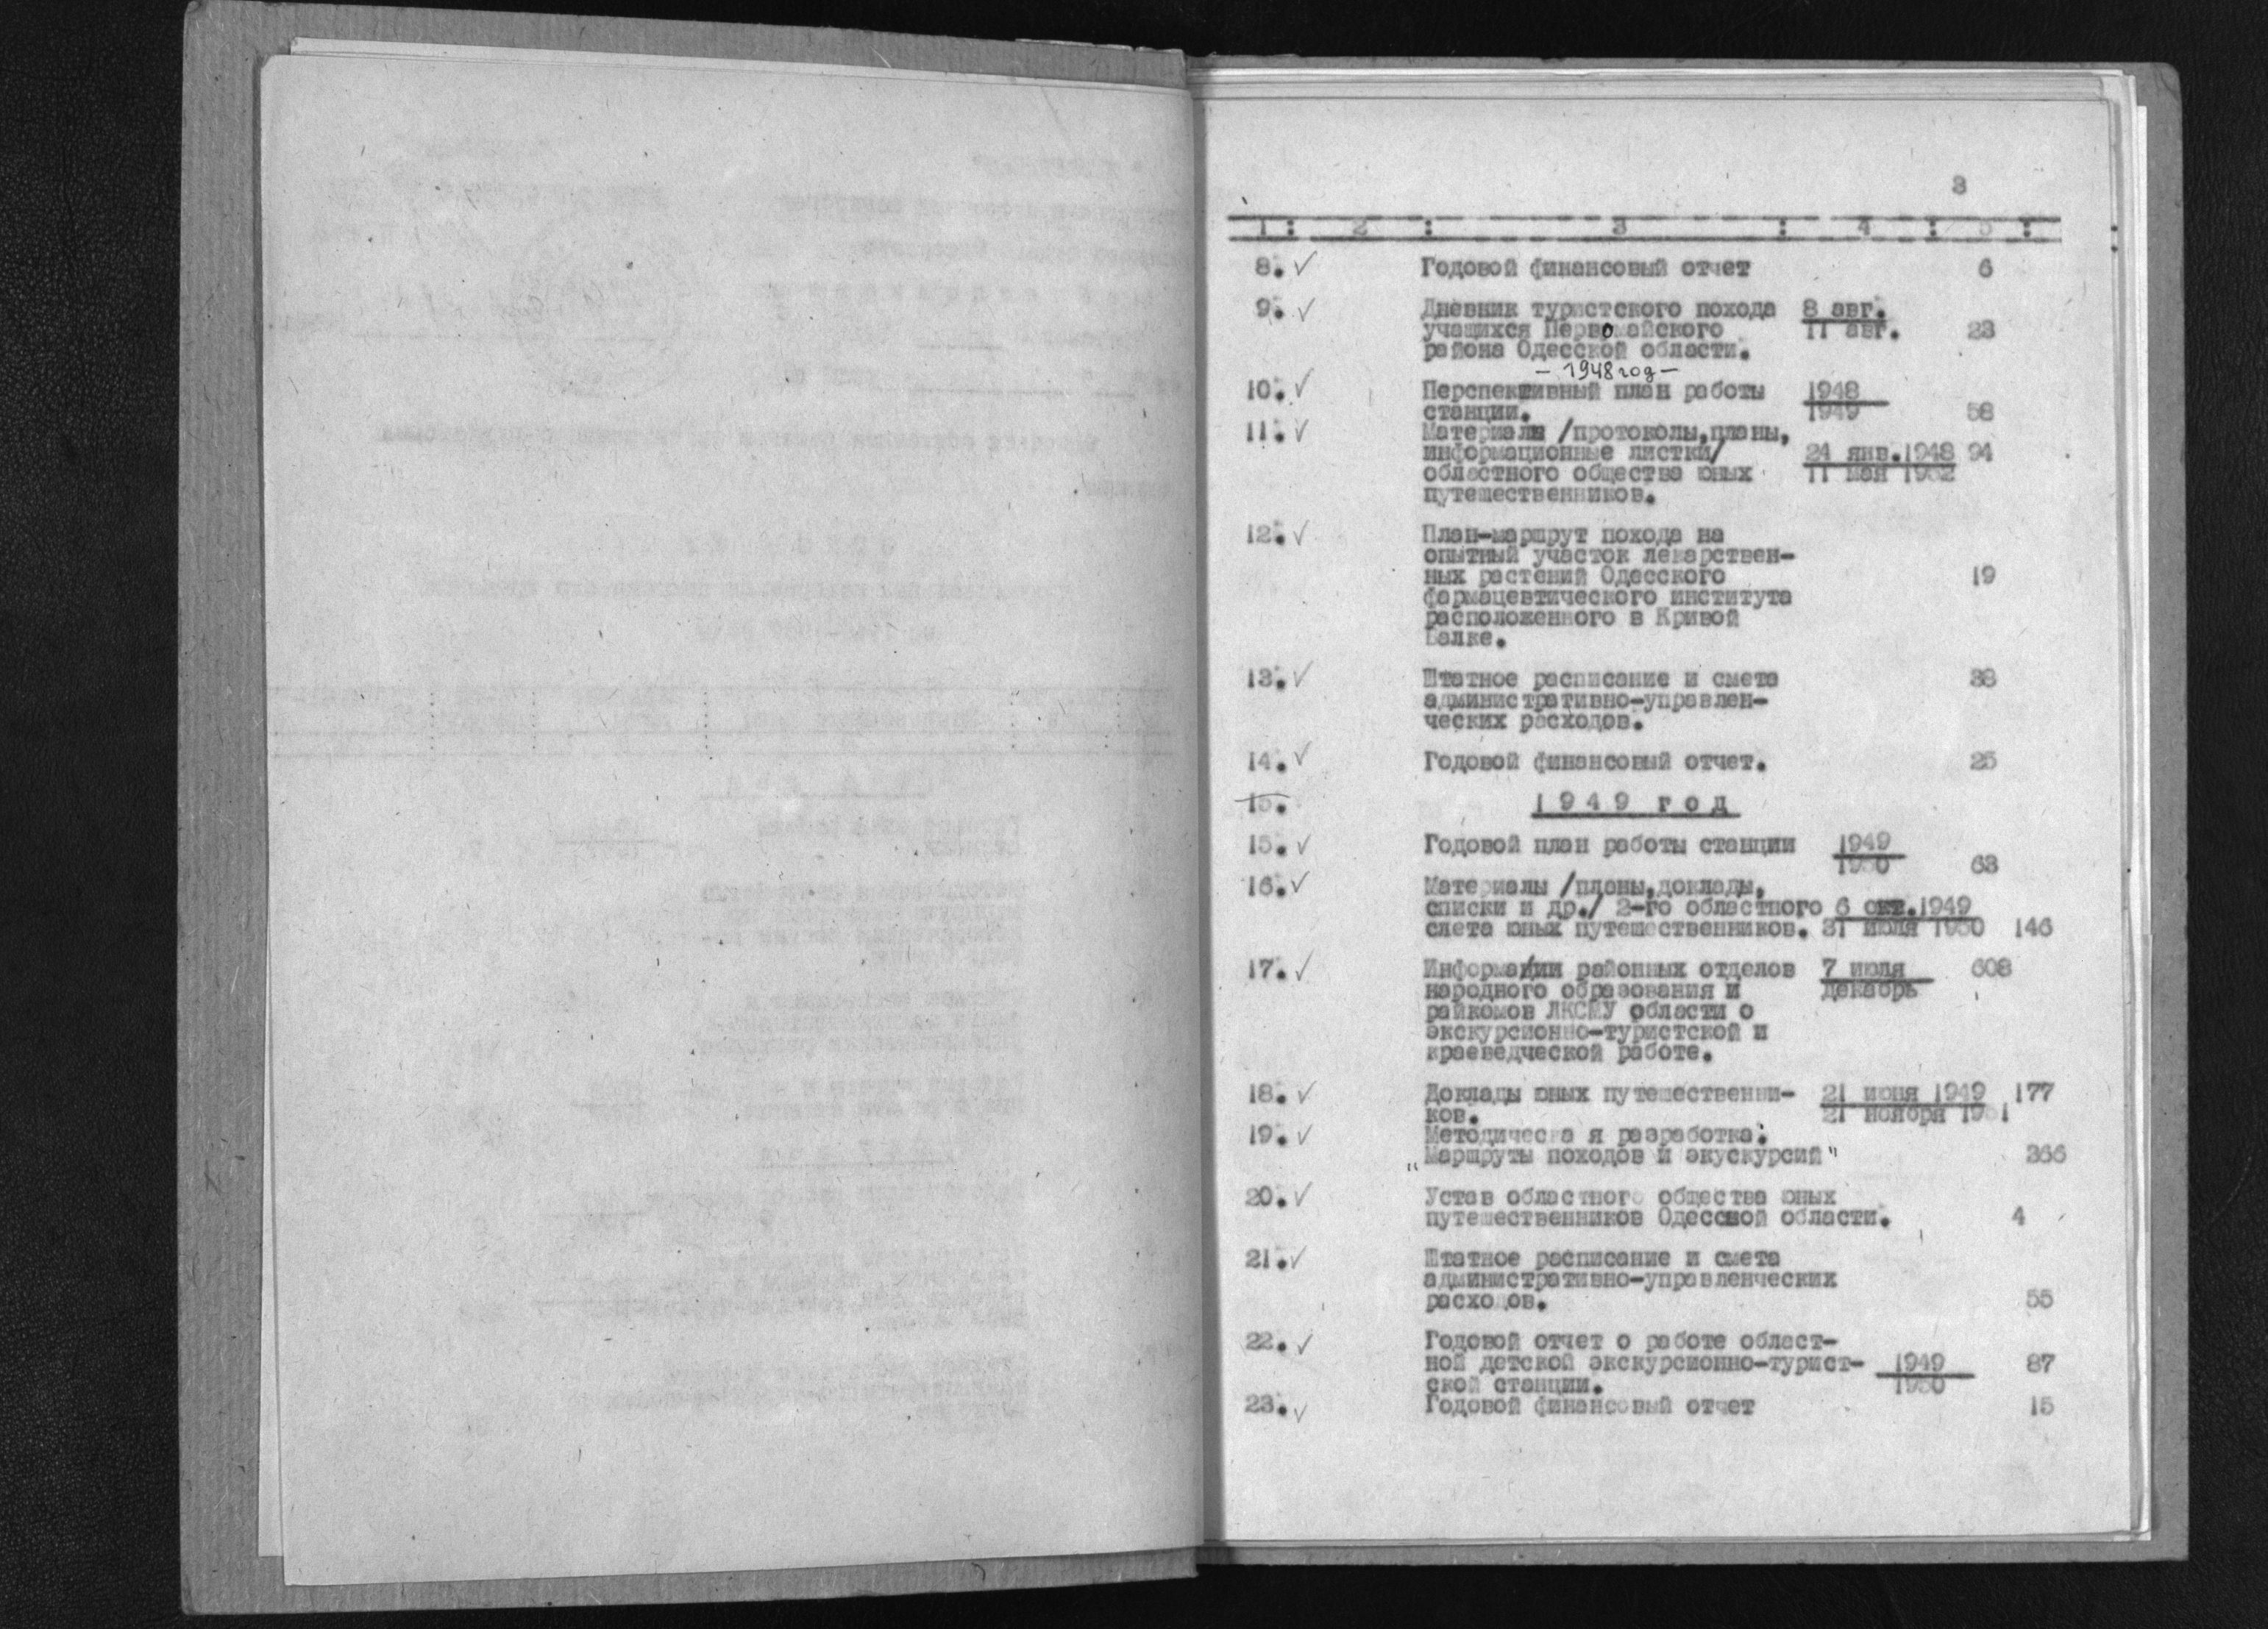 3
1 : 2 : 3 : 4 : 5 :
8. ✓ Годовой финансовый отчет 6
9. ✓ Дневник туристского похода 8 авг.
учащихся Первомайского 11 авг. 23
района Одесской области.
- 1948 год -
10. ✓ Перспективный план работы 1948
станции. 1949 58
11. ✓ Материалы /протоколы,планы,
информационные листки/ 24 янв.1948 94
областного общества юных 11 мая 1952
путешественников.
12. ✓ План-маршрут похода на
опытный участок лекарствен-
ных растений Одесского 19
фармацевтического института
расположенного в Кривой
Балке.
13. ✓ Штатное расписание и смета 38
административно-управлен-
ческих расходов.
14. ✓ Годовой финансовый отчет. 25
15. 1949 год
15. ✓ Годовой план работы станции 1949
1950 63
16. ✓ Материалы /планы,доклады,
списки и др./ 2-го областного 6 окт.1949
слета юных путешественников. 31 июля 1950 146
17. ✓ Информации районных отделов 7 июля 608
народного образования и декабрь
райкомов ЛКСМУ области о
экскурсионно-туристской и
краеведческой работе.
18. ✓ Доклады юных путешественни- 21 июня 1949 177
ков. 21 ноября 1951
19. ✓ Методическа я разработка:
„Маршруты походов и экускурсий" 366
20. ✓ Устав областного общества юных
путешественников Одесской области. 4
21. ✓ Штатное расписание и смета
административно-управленческих
расходов. 55
22. ✓ Годовой отчет о работе област-
ной детской экскурсионно-турист- 1949 87
ской станции. 1950
23. ✓ Годовой финансовый отчет 15